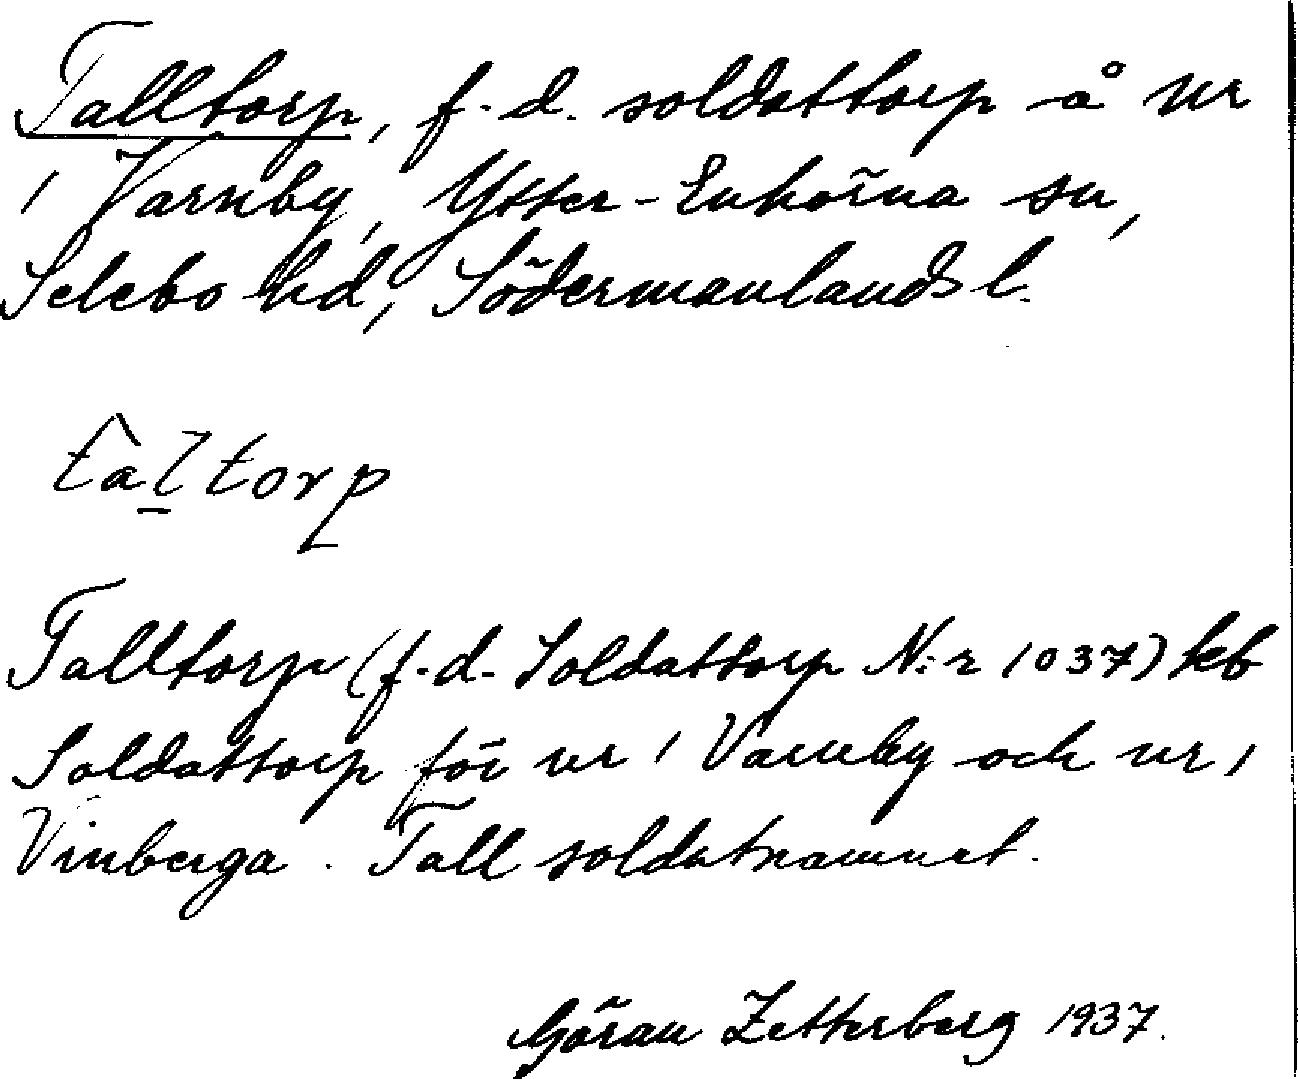 Talltorp, f.d. soldattorp å nr
1 Varnby, Ytter-Enhörna sn,
Selebo hd, Södermanlands l.
tâl̠torp
Talltorp (f.d. Soldattorp N:r 1037) kb
Soldattorp för nr 1 Varnby och nr 1
Vinberga. Tall soldatnamnet.
Göran Zetterberg 1937.